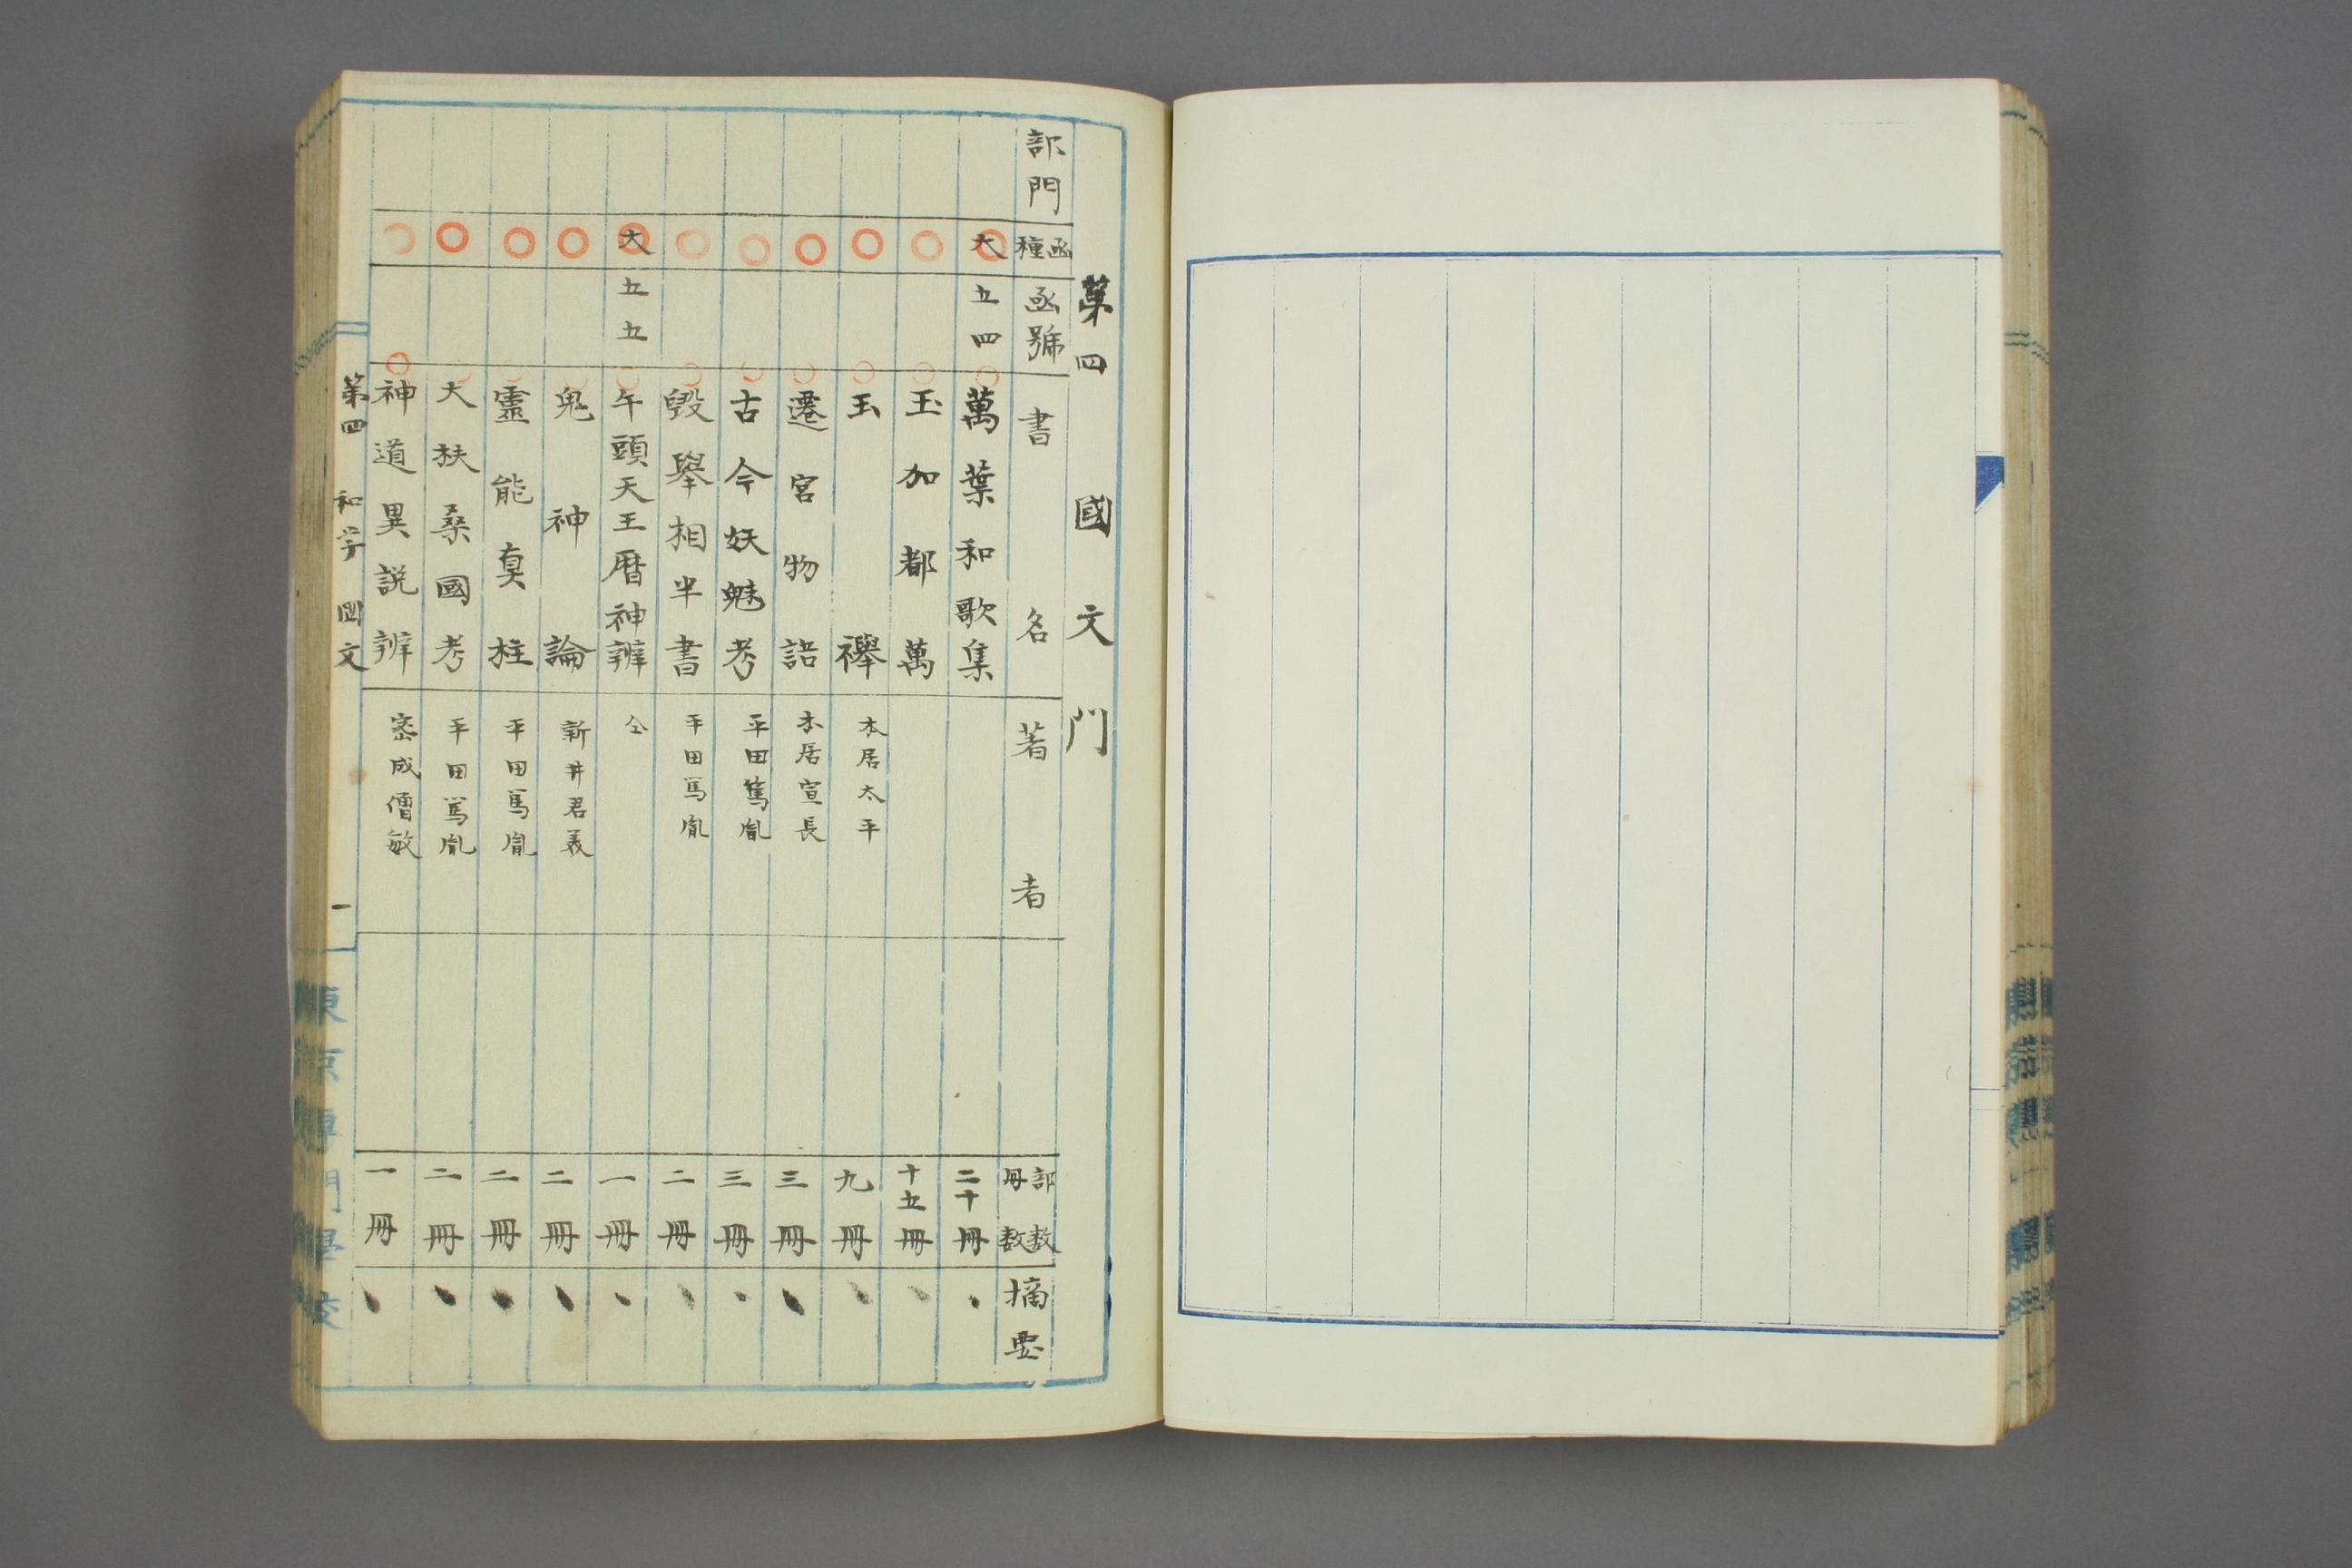 第四 國文門
部門 函種 函號 書名 著者 部数 冊数 摘要
大 五四 萬葉和歌集 二十冊
玉加都萬 十五冊
玉襷 本居太平 九冊
遷宮物語 本居宣長 三冊
古今妖魅考 平田篤胤 三冊
毀擧相半書 平田篤胤 二冊
大 五五 午頭天王暦神辨 仝 一冊
鬼神論 新井君美 二冊
靈能真柱 平田篤胤 二冊
大扶桑國考 平田篤胤 二冊
神道異説辨 密成僧敏 一冊
第四 和学 國文 一
東京專門學校